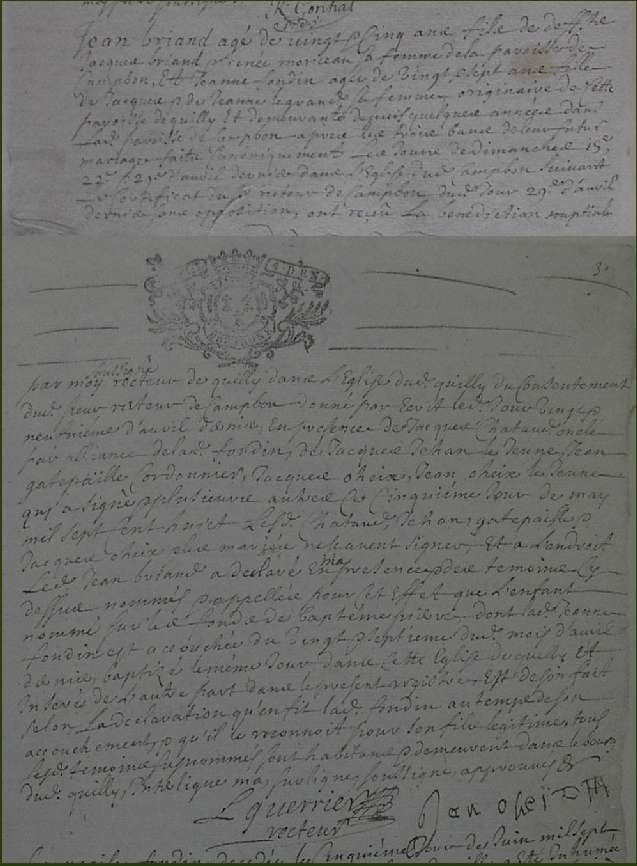 Jean briand agé de vingt & cinq ans fils de deffts
Jacques briand & renée moriceau sa femme de la paroisse de
Campbon, Et Jeanne fondin agée de vingt & sept ans fille
de Jacques & de Jeanne legrand sa femme originaire de cette
paroisse de quilly et demeurante depuis quelques années dans
lad. paroisse de Campbon apres les trois bans de leur futur
mariage faits canoniquement les jours de dimanches 15e
22e & 29e d'avril dernier dans l'Eglise dud. Campbon suivant
le certificat du sr recteur de Campbon dud. jour 29e d'avril
dernier sans opposition, ont reçu la benediction nuptiale
4 DEN
3.
par moy soussigné recteur de quilly dans l'Eglise dud. quilly du consentement
dud. sieur recteur de Campbon donné par Ecrit led. jour vingt &
neufvieme d'avril dernier, En presence de Jacques Chataud oncle
par alliance de lad. fondin, de Jacques Jehan le Jeune, Jean
gatepaille Cordonnier, Jacques oheix, Jean oheix le Jeune
qui a signé & plusieurs autres ce cinquiéme jour de may
mil sept cent huict Lesd. Chataud, Jehan, gatepaille &
Jacques oheix & les mariés ne scavent signer, Et a l'endroit
Led. Jean briand a declaré En ma presence & des temoins cy
dessus nommés & appellés pour cet Effet que l'enfant
nommé sur les fonds de baptéme pierre dont lad. Jeanne
fondin est accouchée du vingt & septieme dud. mois d'avril
dernier, baptisé le méme jour dans cette Eglise de quilly Et
Inseré de l'autre part dans le present registre, Est de son fait
selon la declaration qu'en fit lad. fondin au temps de son
accouchement, & qu'il le reconnoit pour son fils legitime, tous
lesd. temoins susnommés sont habitans & demeurent dans le bourg
dud. quilly, Interligne ma, surligne soussigné, approuvés &
L guerrier
recteur
Jan oheix
cinquiéme jour de Juin mil sept